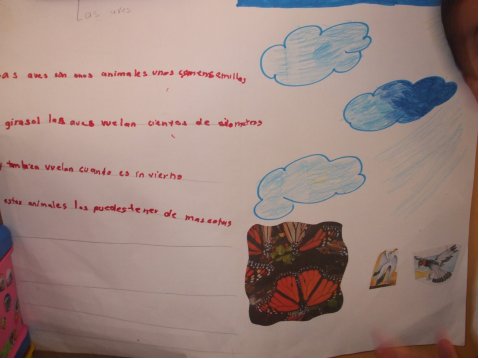 Las aves
as aves son unos animales unos comen semillas
girasol las aves vuelan cientos de kilometros
y tambien vuelan cuando es invierno
estos animales los puedes tener de mascotas